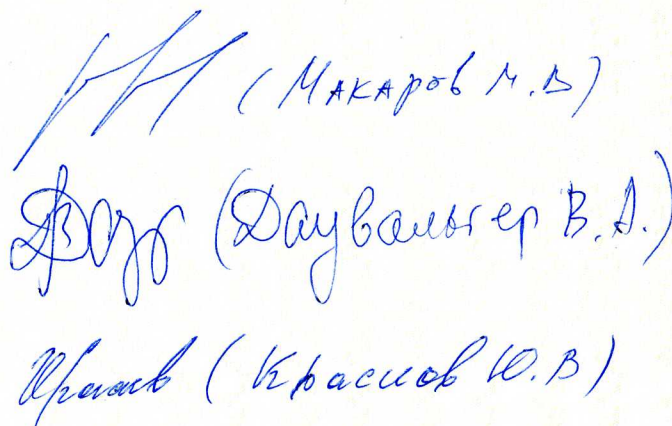 (Макаров М.В)
(Даувальтер В.А.)
(Краснов Ю.В)